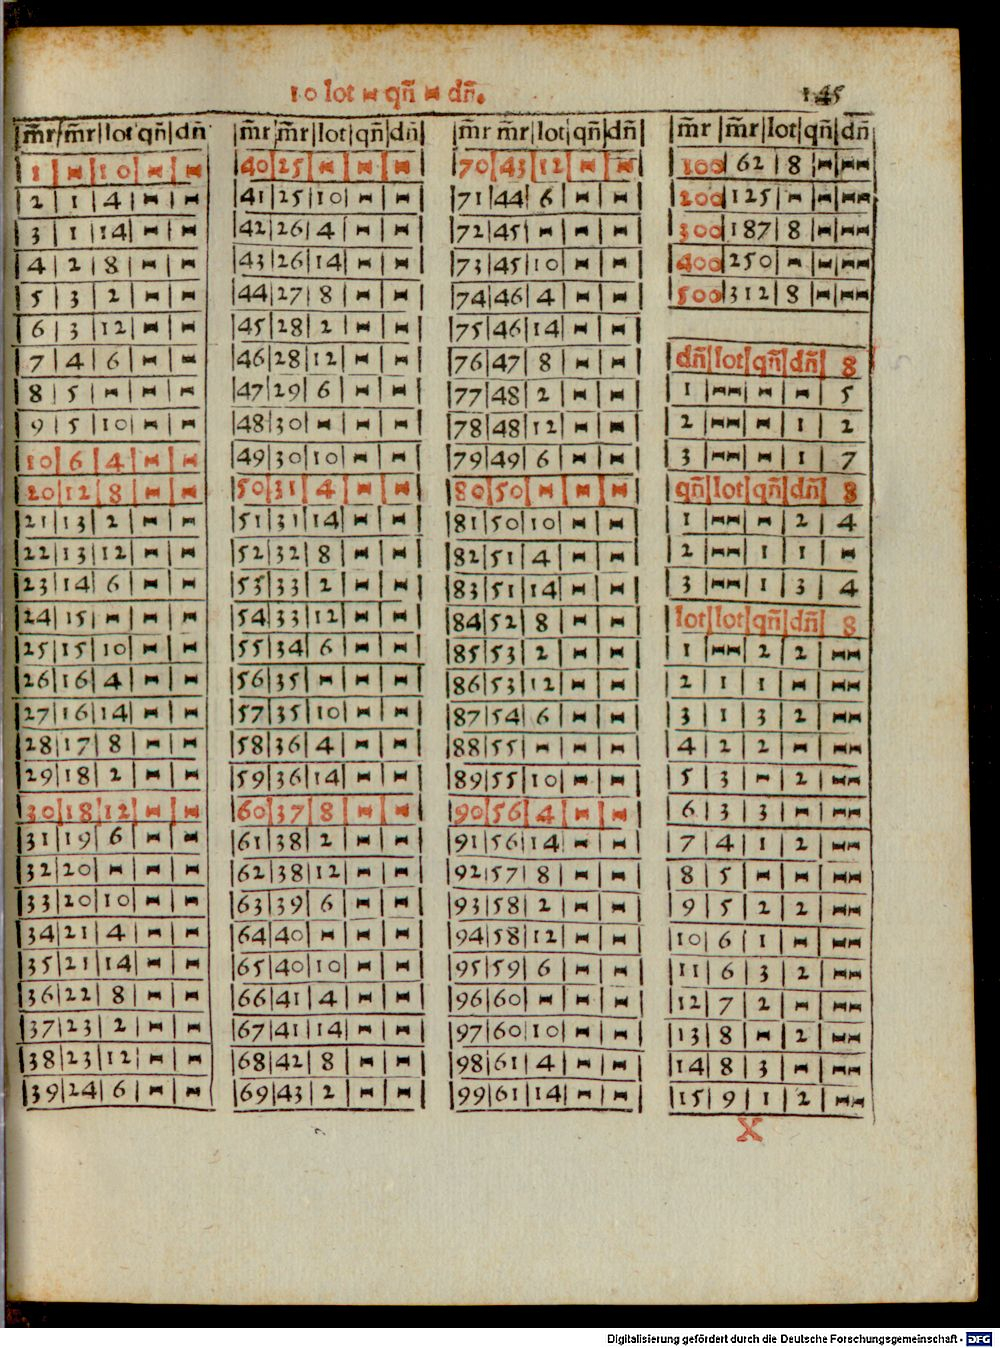 10 lot - qñ - dñ.
145
m̃r m̃r lot qñ dñ
1 - 10 - -
2 1 4 - -
3 1 14 - -
4 2 8 - -
5 3 2 - -
6 3 12 - -
7 4 6 - -
8 5 - - -
9 5 10 - -
10 6 4 - -
20 12 8 - -
21 13 2 - -
22 13 12 - -
23 14 6 - -
24 15 - - -
25 15 10 - -
26 16 4 - -
27 16 14 - -
28 17 8 - -
29 18 2 - -
30 18 12 - -
31 19 6 - -
32 20 - - -
33 20 10 - -
34 21 4 - -
35 21 14 - -
36 22 8 - -
37 23 2 - -
38 23 12 - -
39 24 6 - -
m̃r m̃r lot qñ dñ
40 25 - - -
41 25 10 - -
42 26 4 - -
43 26 14 - -
44 27 8 - -
45 28 2 - -
46 28 12 - -
47 29 6 - -
48 30 - - -
49 30 10 - -
50 31 4 - -
51 31 14 - -
52 32 8 - -
53 33 2 - -
54 33 12 - -
55 34 6 - -
56 35 - - -
57 35 10 - -
58 36 4 - -
59 36 14 - -
60 37 8 - -
61 38 2 - -
62 38 12 - -
63 39 6 - -
64 40 - - -
65 40 10 - -
66 41 4 - -
67 41 14 - -
68 42 8 - -
69 43 2 - -
m̃r m̃r lot qñ dñ
70 43 12 - -
71 44 6 - -
72 45 - - -
73 45 10 - -
74 46 4 - -
75 46 14 - -
76 47 8 - -
77 48 2 - -
78 48 12 - -
79 49 6 - -
80 50 - - -
81 50 10 - -
82 51 4 - -
83 51 14 - -
84 52 8 - -
85 53 2 - -
86 53 12 - -
87 54 6 - -
88 55 - - -
89 55 10 - -
90 56 4 - -
91 56 14 - -
92 57 8 - -
93 58 2 - -
94 58 12 - -
95 59 6 - -
96 60 - - -
97 60 10 - -
98 61 4 - -
99 61 14 - -
m̃r m̃r lot qñ dñ
100 62 8 - --
200 125 - - --
300 187 8 - --
400 250 - - --
500 312 8 - --
dñ lot qñ dñ 8
1 -- - - 5
2 -- - 1 2
3 -- - 1 7
qñ lot qñ dñ 8
1 -- - 2 4
2 -- 1 1 -
3 -- 1 3 4
lot lot qñ dñ 8
1 -- 2 2 --
2 1 1 - --
3 1 3 2 --
4 2 2 - --
5 3 - 2 --
6 3 3 - --
7 4 1 2 --
8 5 - - --
9 5 2 2 --
10 6 1 - --
11 6 3 2 --
12 7 2 - --
13 8 - 2 --
14 8 3 - --
15 9 1 2 --
X
Digitalisierung gefördert durch die Deutsche Forschungsgemeinschaft - DFG